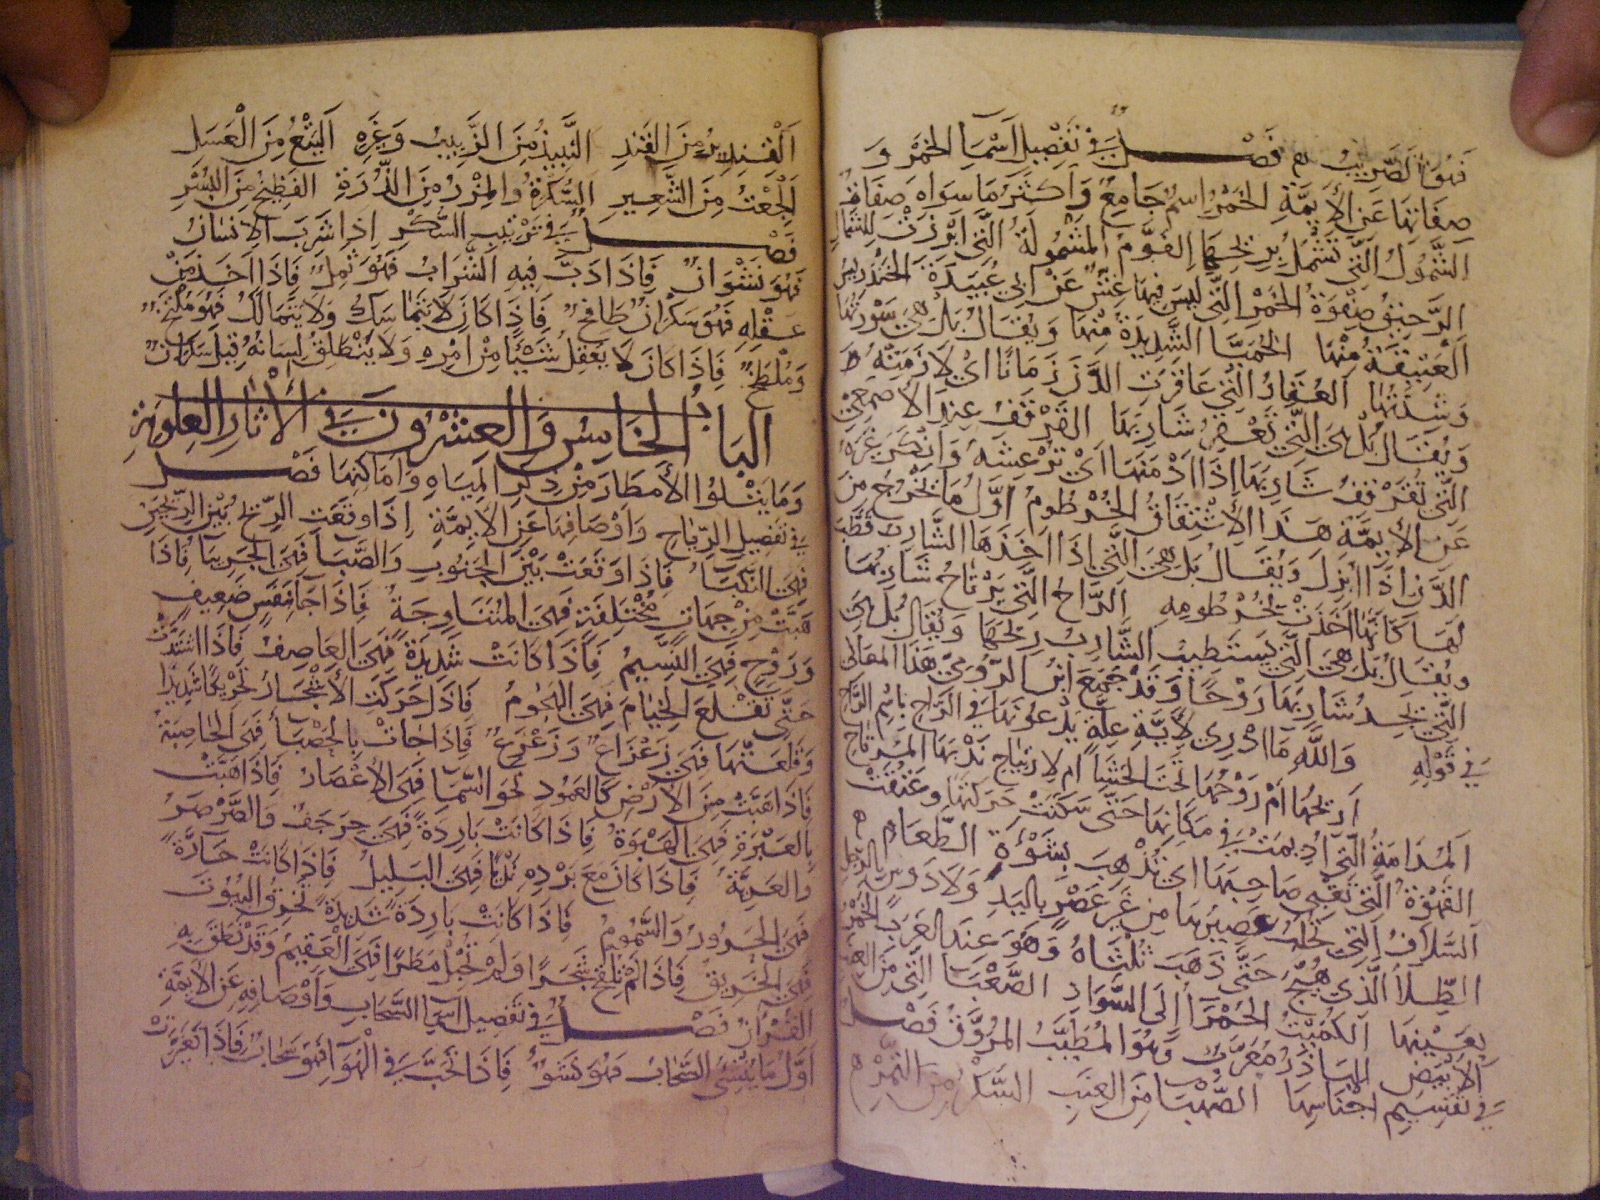 فَهُوَ الضَّرِيبُ فَصْلٌ فِي تَفْصِيلِ أَسْمَاءِ الْخَمْرِ وَ
صِفَاتِهَا عَنِ الْأَيِمَّةِ الْخَمْرُ اسْمٌ جَامِعٌ وَأَكْثَرُ مَا سِوَاهُ صِفَاتٌ
الشَّمُولُ الَّتِي تَشْمَلُ بِرِيحِهَا الْقَوْمَ الْمَشْمُولَةُ الَّتِي أُبْرِزَتْ لِلشَّمَالِ
الرَّحِيقُ صَفْوَةُ الْخَمْرِ الَّتِي لَيْسَ فِيهَا غِشٌّ عَنْ أَبِي عُبَيْدَةَ الْخَنْدَرِيسُ
الْعَتِيقَةُ مِنْهَا الْحُمَيَّا الشَّدِيدَةُ مِنْهَا وَيُقَالُ بَلْ هِيَ سَوْرَتُهَا
وَشِدَّتُهَا الْعُقَارُ الَّتِي عَاقَرَتِ الدَّنَّ زَمَانًا أَيْ لَازَمَتْهُ
وَيُقَالُ بَلْ هِيَ الَّتِي تَعْقِرُ شَارِبَهَا الْقَرْقَفُ عِنْدَ الْأَصْمَعِيِّ
الَّتِي تُقَرْقِفُ شَارِبَهَا إِذَا أَدْمَنَهَا أَيْ تُرْعِشُهُ وَأَنْكَرَ غَيْرُهُ
عَنِ الْأَيِمَّةِ هَذَا الِاشْتِقَاقَ الْخُرْطُومُ أَوَّلُ مَا يَخْرُجُ مِنَ
الدَّنِّ إِذَا بُزِلَ وَيُقَالُ بَلْ هِيَ الَّتِي إِذَا أَخَذَهَا الشَّارِبُ قَطَّبَ
لَهَا كَأَنَّهَا أَخَذَتْ بِخُرْطُومِهِ الرَّاحُ الَّتِي يَرْتَاحُ شَارِبُهَا
وَيُقَالُ بَلْ هِيَ الَّتِي يَسْتَطِيبُ الشَّارِبُ رِيحَهَا وَيُقَالُ بَلْ هِيَ
الَّتِي يَجِدُ شَارِبُهَا رَوْحًا وَقَدْ جَمَعَ ابْنُ الرُّومِيِّ هَذَا الْمَعَانِي
فِي قَوْلِهِ وَاللَّهِ مَا أَدْرِي لِأَيَّةِ عِلَّةٍ يَدْعُونَهَا فِي الرَّاحِ بِاسْمِ الرَّاحِ
أَرِيحُهَا أَمْ رَوْحُهَا تَحْتَ الْحَشَا أَمْ لِارْتِيَاحِ نَدِيمِهَا الْمُرْتَاحِ
الْمُدَامَةُ الَّتِي أُدِيمَتْ فِي مَكَانِهَا حَتَّى سَكَنَتْ حَرَكَتُهَا وَعَتُقَتْ
الْقَهْوَةُ الَّتِي تُقْهِي صَاحِبَهَا أَيْ تُذْهِبُ بِشَهْوَةِ الطَّعَامِ
السُّلَافُ الَّتِي تَحَلَّبَ عَصِيرُهَا مِنْ غَيْرِ عَصْرٍ بِالْيَدِ وَلَا دَوْسٍ بِالرِّجْلِ
الطِّلَاءُ الَّذِي طُبِخَ حَتَّى ذَهَبَ ثُلُثَاهُ وَهُوَ عِنْدَ الْعَرَبِ الْخَمْرُ
بِعَيْنِهَا الْكُمَيْتُ الْحَمْرَاءُ إِلَى السَّوَادِ الصَّهْبَاءُ الَّتِي مِنَ الْعِنَبِ
الْأَبْيَضِ الْبَاذَقُ مُعَرَّبٌ وَهُوَ الْمُطَيَّبُ الْمُرَوَّقُ فَصْلٌ
فِي تَقْسِيمِ أَجْنَاسِهَا الصَّهْبَاءُ مِنَ الْعِنَبِ السَّكَرُ مِنَ التَّمْرِ
الْقِنْدِيدُ مِنَ الْقَنْدِ النَّبِيذُ مِنَ الزَّبِيبِ وَغَيْرِهِ الْبِتْعُ مِنَ الْعَسَلِ
الْجِعَةُ مِنَ الشَّعِيرِ السُّكُرْكَةُ وَالْمِزْرُ مِنَ الذُّرَةِ الْفَضِيخُ مِنَ الْبُسْرِ
فَصْلٌ فِي تَرْتِيبِ السُّكْرِ إِذَا شَرِبَ الْإِنْسَانُ
فَهُوَ نَشْوَانُ فَإِذَا دَبَّ فِيهِ الشَّرَابُ فَهُوَ ثَمِلٌ فَإِذَا أَخَذَ مِنْ
عَقْلِهِ فَهُوَ سَكْرَانُ طَافِحٌ فَإِذَا كَانَ لَا يَتَمَاسَكُ وَلَا يَتَمَالَكُ فَهُوَ مُلْتَخٌّ
وَمُلْطَخٌّ فَإِذَا كَانَ لَا يَعْقِلُ شَيْئًا مِنْ أَمْرِهِ وَلَا يَنْطَلِقُ لِسَانُهُ قِيلَ سَكْرَانُ
الْبَابُ الْخَامِسُ وَالْعِشْرُونَ فِي الْأَثَارِ الْعُلْوِيَّةِ
وَمَا يَتْلُوا الْأَمْطَارَ مِنْ ذِكْرِ الْمِيَاهِ وَأَمَاكِنِهَا فَصْلٌ
فِي تَفْصِيلِ الرِّيَاحِ وَأَوْصَافِهَا عَنِ الْأَيِمَّةِ إِذَا وَقَعَتِ الرِّيحُ بَيْنَ الرِّيحَيْنِ
فَهِيَ النَّكْبَاءُ فَإِذَا وَقَعَتْ بَيْنَ الْجَنُوبِ وَالصَّبَا فَهِيَ الْجِرْبِيَاءُ فَإِذَا
هَبَّتْ مِنْ جِهَاتٍ مُخْتَلِفَةٍ فَهِيَ الْمُتَنَاوِحَةُ فَإِذَا جَاءَتْ بِنَفَسٍ ضَعِيفٍ
وَرَوْحٍ فَهِيَ النَّسِيمُ فَإِذَا كَانَتْ شَدِيدَةً فَهِيَ الْعَاصِفُ فَإِذَا اشْتَدَّتْ
حَتَّى تَقْلَعَ الْخِيَامَ فَهِيَ الْهَجُومُ فَإِذَا حَرَّكَتِ الْأَشْجَارَ تَحْرِيكًا شَدِيدًا
وَقَلَعَتْهَا فَهِيَ زَعْزَاعٌ وَزَعْزَعٌ فَإِذَا جَاءَتْ بِالْحَصْبَاءِ فَهِيَ الْحَاصِبَةُ
فَإِذَا هَبَّتْ مِنَ الْأَرْضِ كَالْعَمُودِ نَحْوَ السَّمَاءِ فَهِيَ الْإِعْصَارُ فَإِذَا هَبَّتْ
بِالْغَبْرَةِ فَهِيَ الْهَبْوَةُ فَإِذَا كَانَتْ بَارِدَةً فَهِيَ حَرْجَفٌ وَالصَّرْصَرُ
وَالْعَرِيَّةُ فَإِذَا كَانَ مَعَ بَرْدِهِ نَدًى فَهِيَ الْبَلِيلُ فَإِذَا كَانَتْ حَارَّةً
فَهِيَ الْحَرُورُ وَالسَّمُومُ فَإِذَا كَانَتْ بَارِدَةً شَدِيدَةً تَخْرِقُ الْبُيُوتَ
فَهِيَ الْخَرِيقُ فَإِذَا لَمْ تُلْقِحْ شَجَرًا وَلَمْ تَحْمِلْ مَطَرًا فَهِيَ الْعَقِيمُ وَقَدْ نَطَقَ بِهِ
الْقُرْآنُ فَصْلٌ فِي تَفْصِيلِ أَسْمَاءِ السَّحَابِ وَأَوْصَافِهِ عَنِ الْأَيِمَّةِ
أَوَّلُ مَا يُنْشِئُ السَّحَابُ فَهُوَ نَشْوٌ فَإِذَا انْسَحَبَ فِي الْهَوَاءِ فَهُوَ سَحَابٌ فَإِذَا تَغَيَّرَتْ